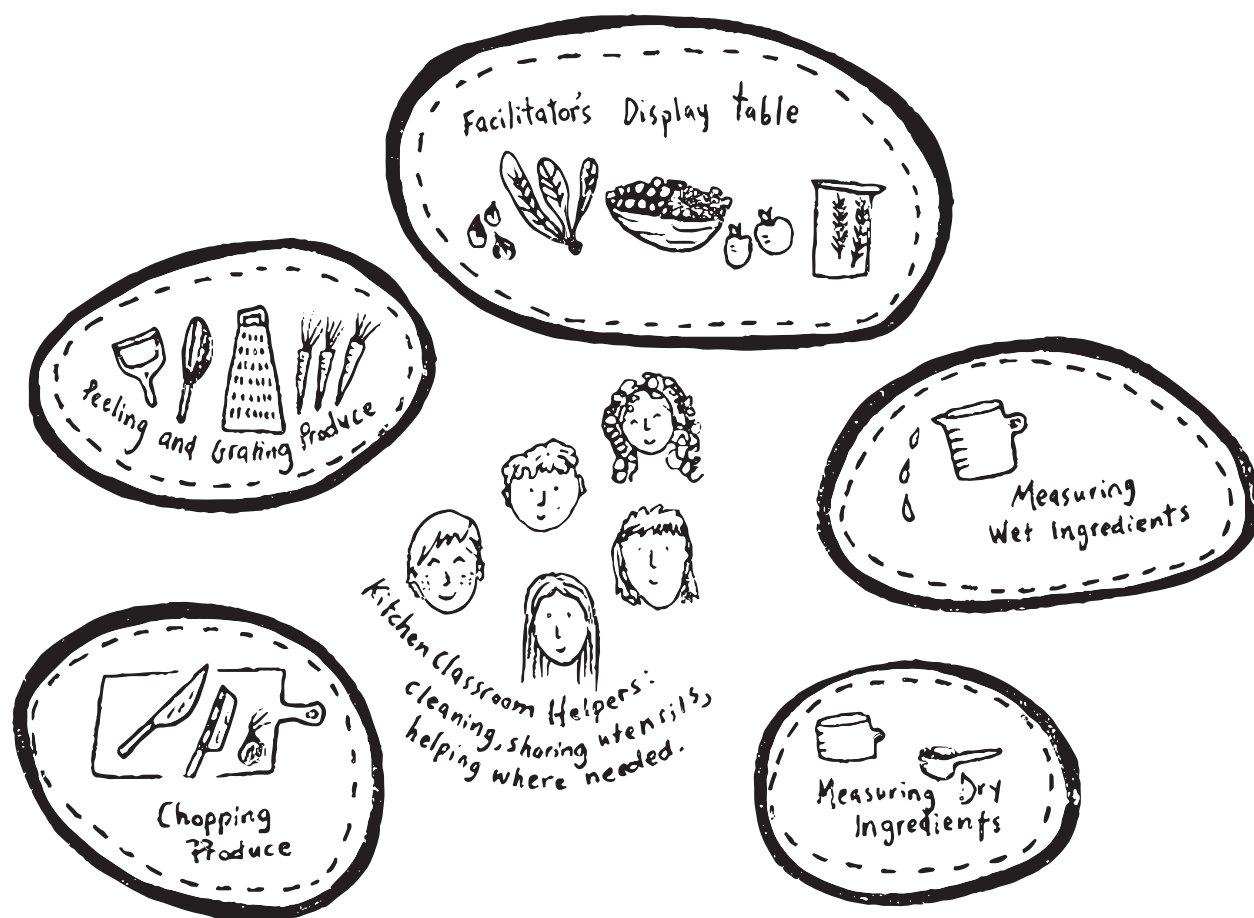 Facilitator's Display table
Peeling and Grating Produce
Measuring
Wet Ingredients
Kitchen Classroom Helpers:
cleaning, sharing utensils,
helping where needed.
Chopping
Produce
Measuring Dry
Ingredients